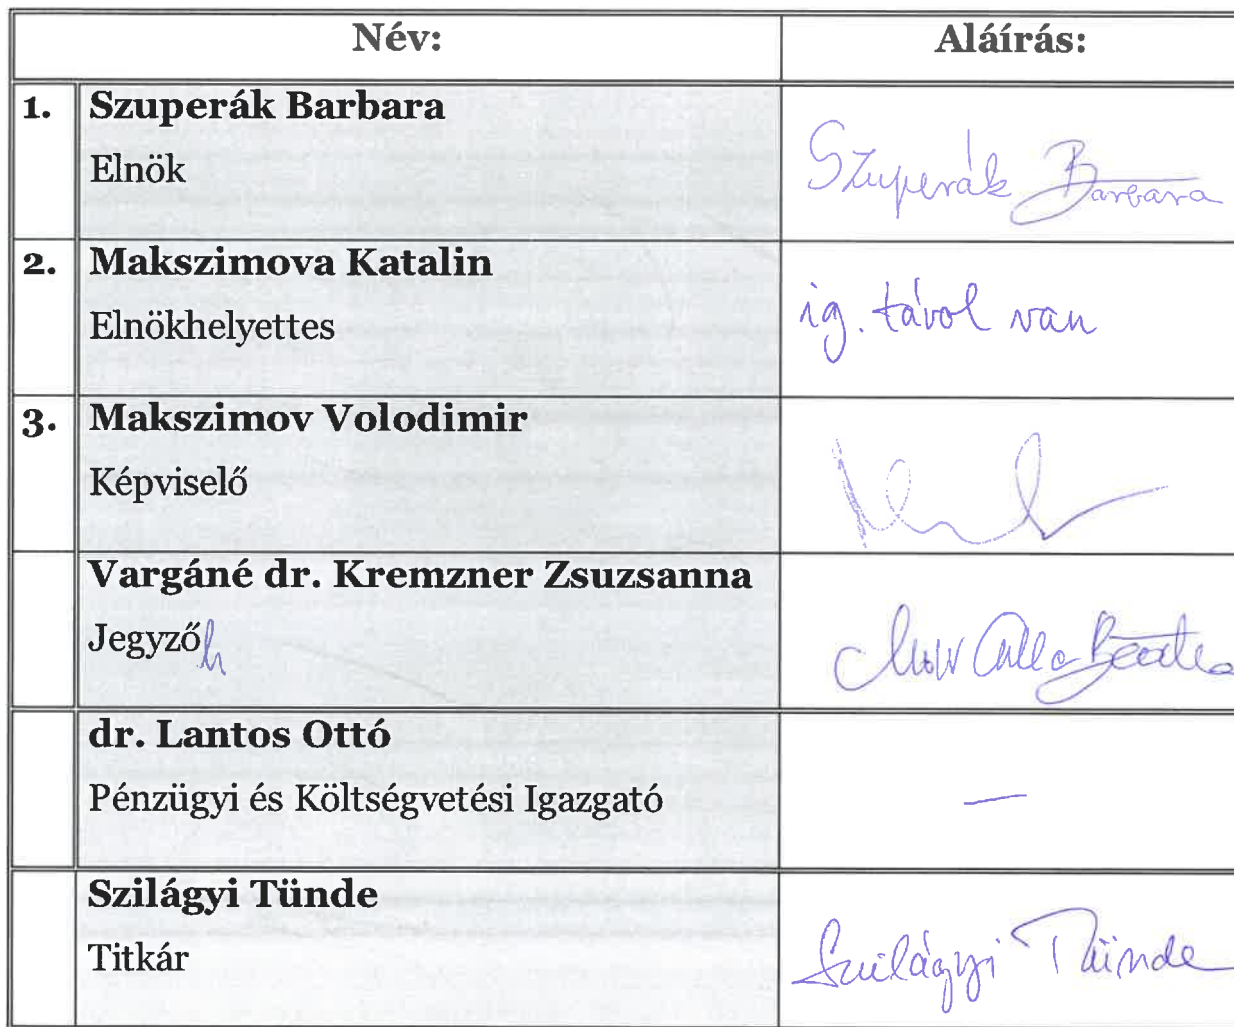 Név: Aláírás:
1. Szuperák Barbara
Elnök
Szuperák Barbara
2. Makszimova Katalin
Elnökhelyettes
ig. távol van
3. Makszimov Volodimir
Képviselő
Vargáné dr. Kremzner Zsuzsanna
Jegyző
dr. Lantos Ottó
—
Pénzügyi és Költségvetési Igazgató
Szilágyi Tünde
Titkár
Szilágyi Tünde